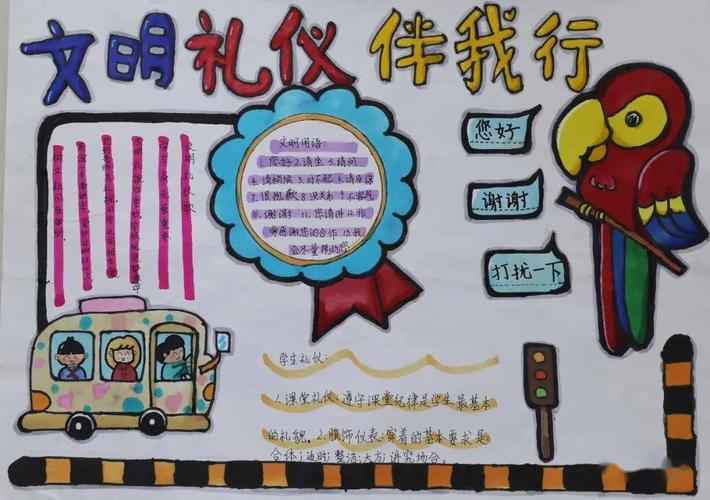 文明礼仪 伴我行
文明礼仪歌
文明用语:
1.您好 2.请坐 3.请问
4.请稍候 5.对不起 6.请原谅
7.很抱歉 8.没关系 9.不客气
10.谢谢 11.您请讲 12.非
常感谢您的合作 13.我
会尽量帮助您
您好
谢谢
打扰一下
学生礼仪:
1.课堂礼仪:遵守课堂纪律是学生最基本
的礼貌。2.服饰仪表:穿着的基本要求是
合体;适时;整洁;大方;讲究场合。